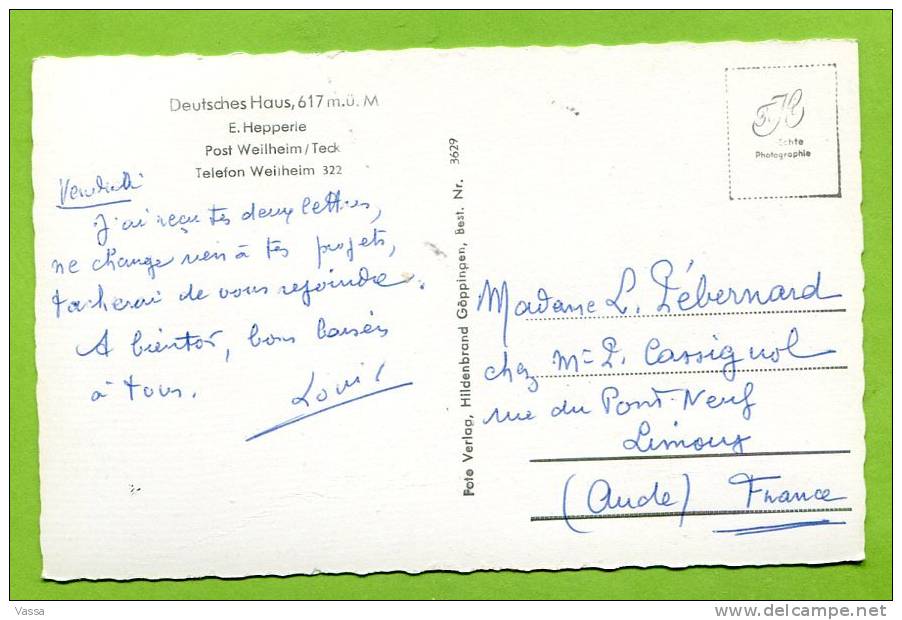 Deutsches Haus, 617 m.ü.M
E. Hepperle
Post Weilheim/Teck
Telefon Weilheim 322
Vendredi
J'ai reçu tes deux lettres,
ne change rien à tes projets,
tacherai de vous rejoindre.
A bientôt, bons baisers
à tous. Louis
Foto Verlag, Hildenbrand Göppingen, Best. Nr. 3629
Echte
Photographie
Madame L. Pébernard
chez Mr P. Cassignol
rue du Pont-Neuf
Limoux
(Aude) France
Vassa
www.delcampe.net